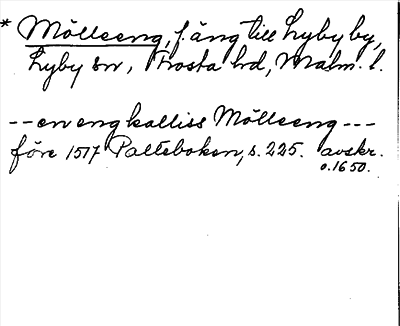 * Mölleeng, f. äng till Lyby by,
Lyby sn, Frosta hd, Malm. l.
-- en eng kalliss Mölleeng ---
före 1517 Palteboken, s. 225. avskr.
o. 1650.